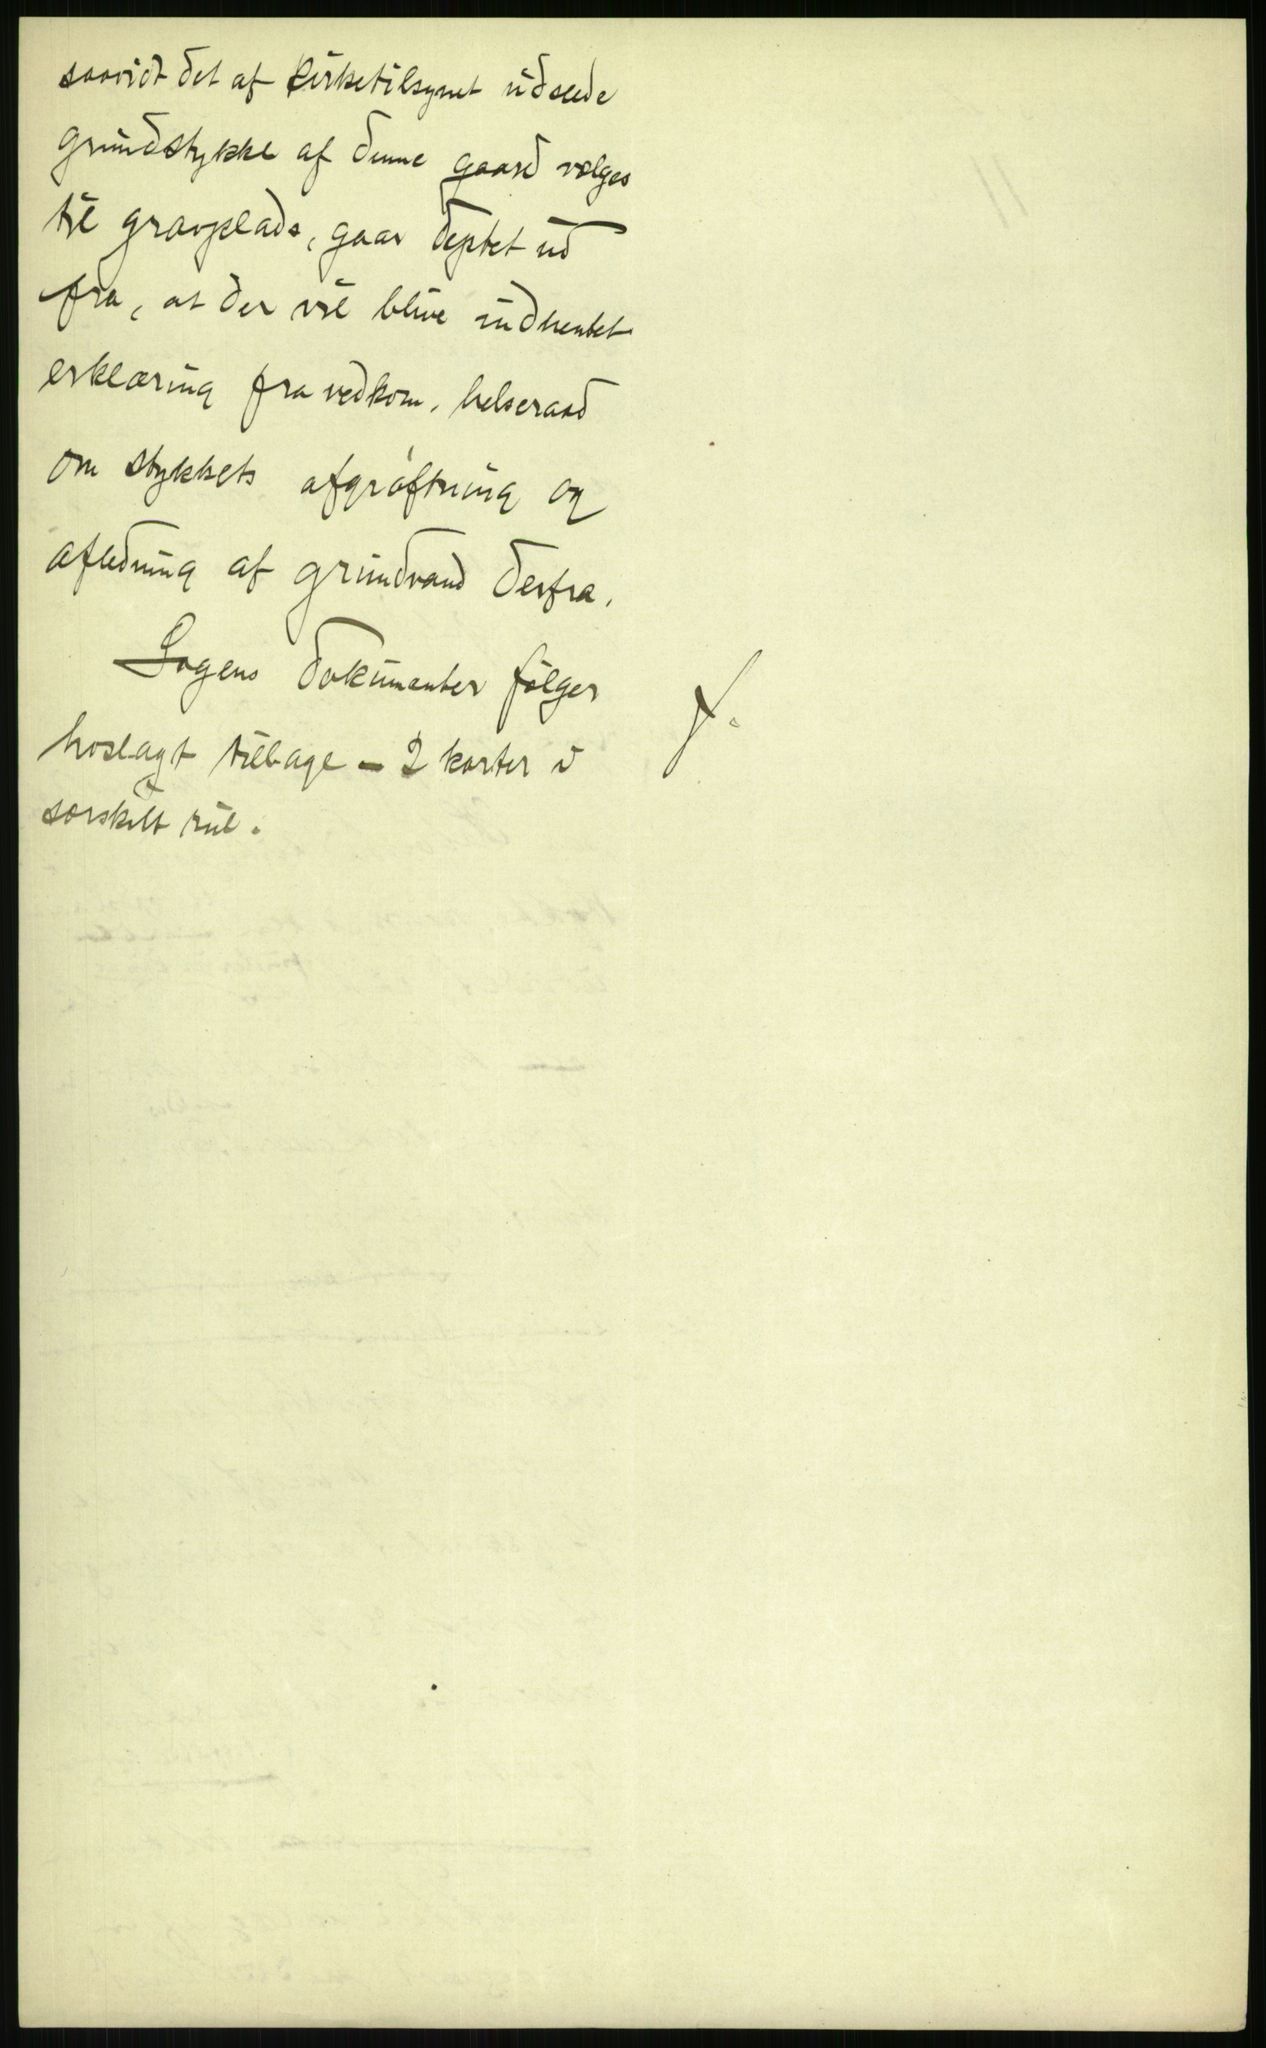 saavidt det af kirketilsynet udseede
grundstykke af denne gaard vælges
til gravplads, gaar deptet ud
fra, at der vil blive indhentet
erklæring fra vedkom. helseraad
om stykkets afgrøftning og
afledning af grundvand derfra.
Sagens dokumenter følger
hoslagt tilbage – 2 karter i
særskilt rul.